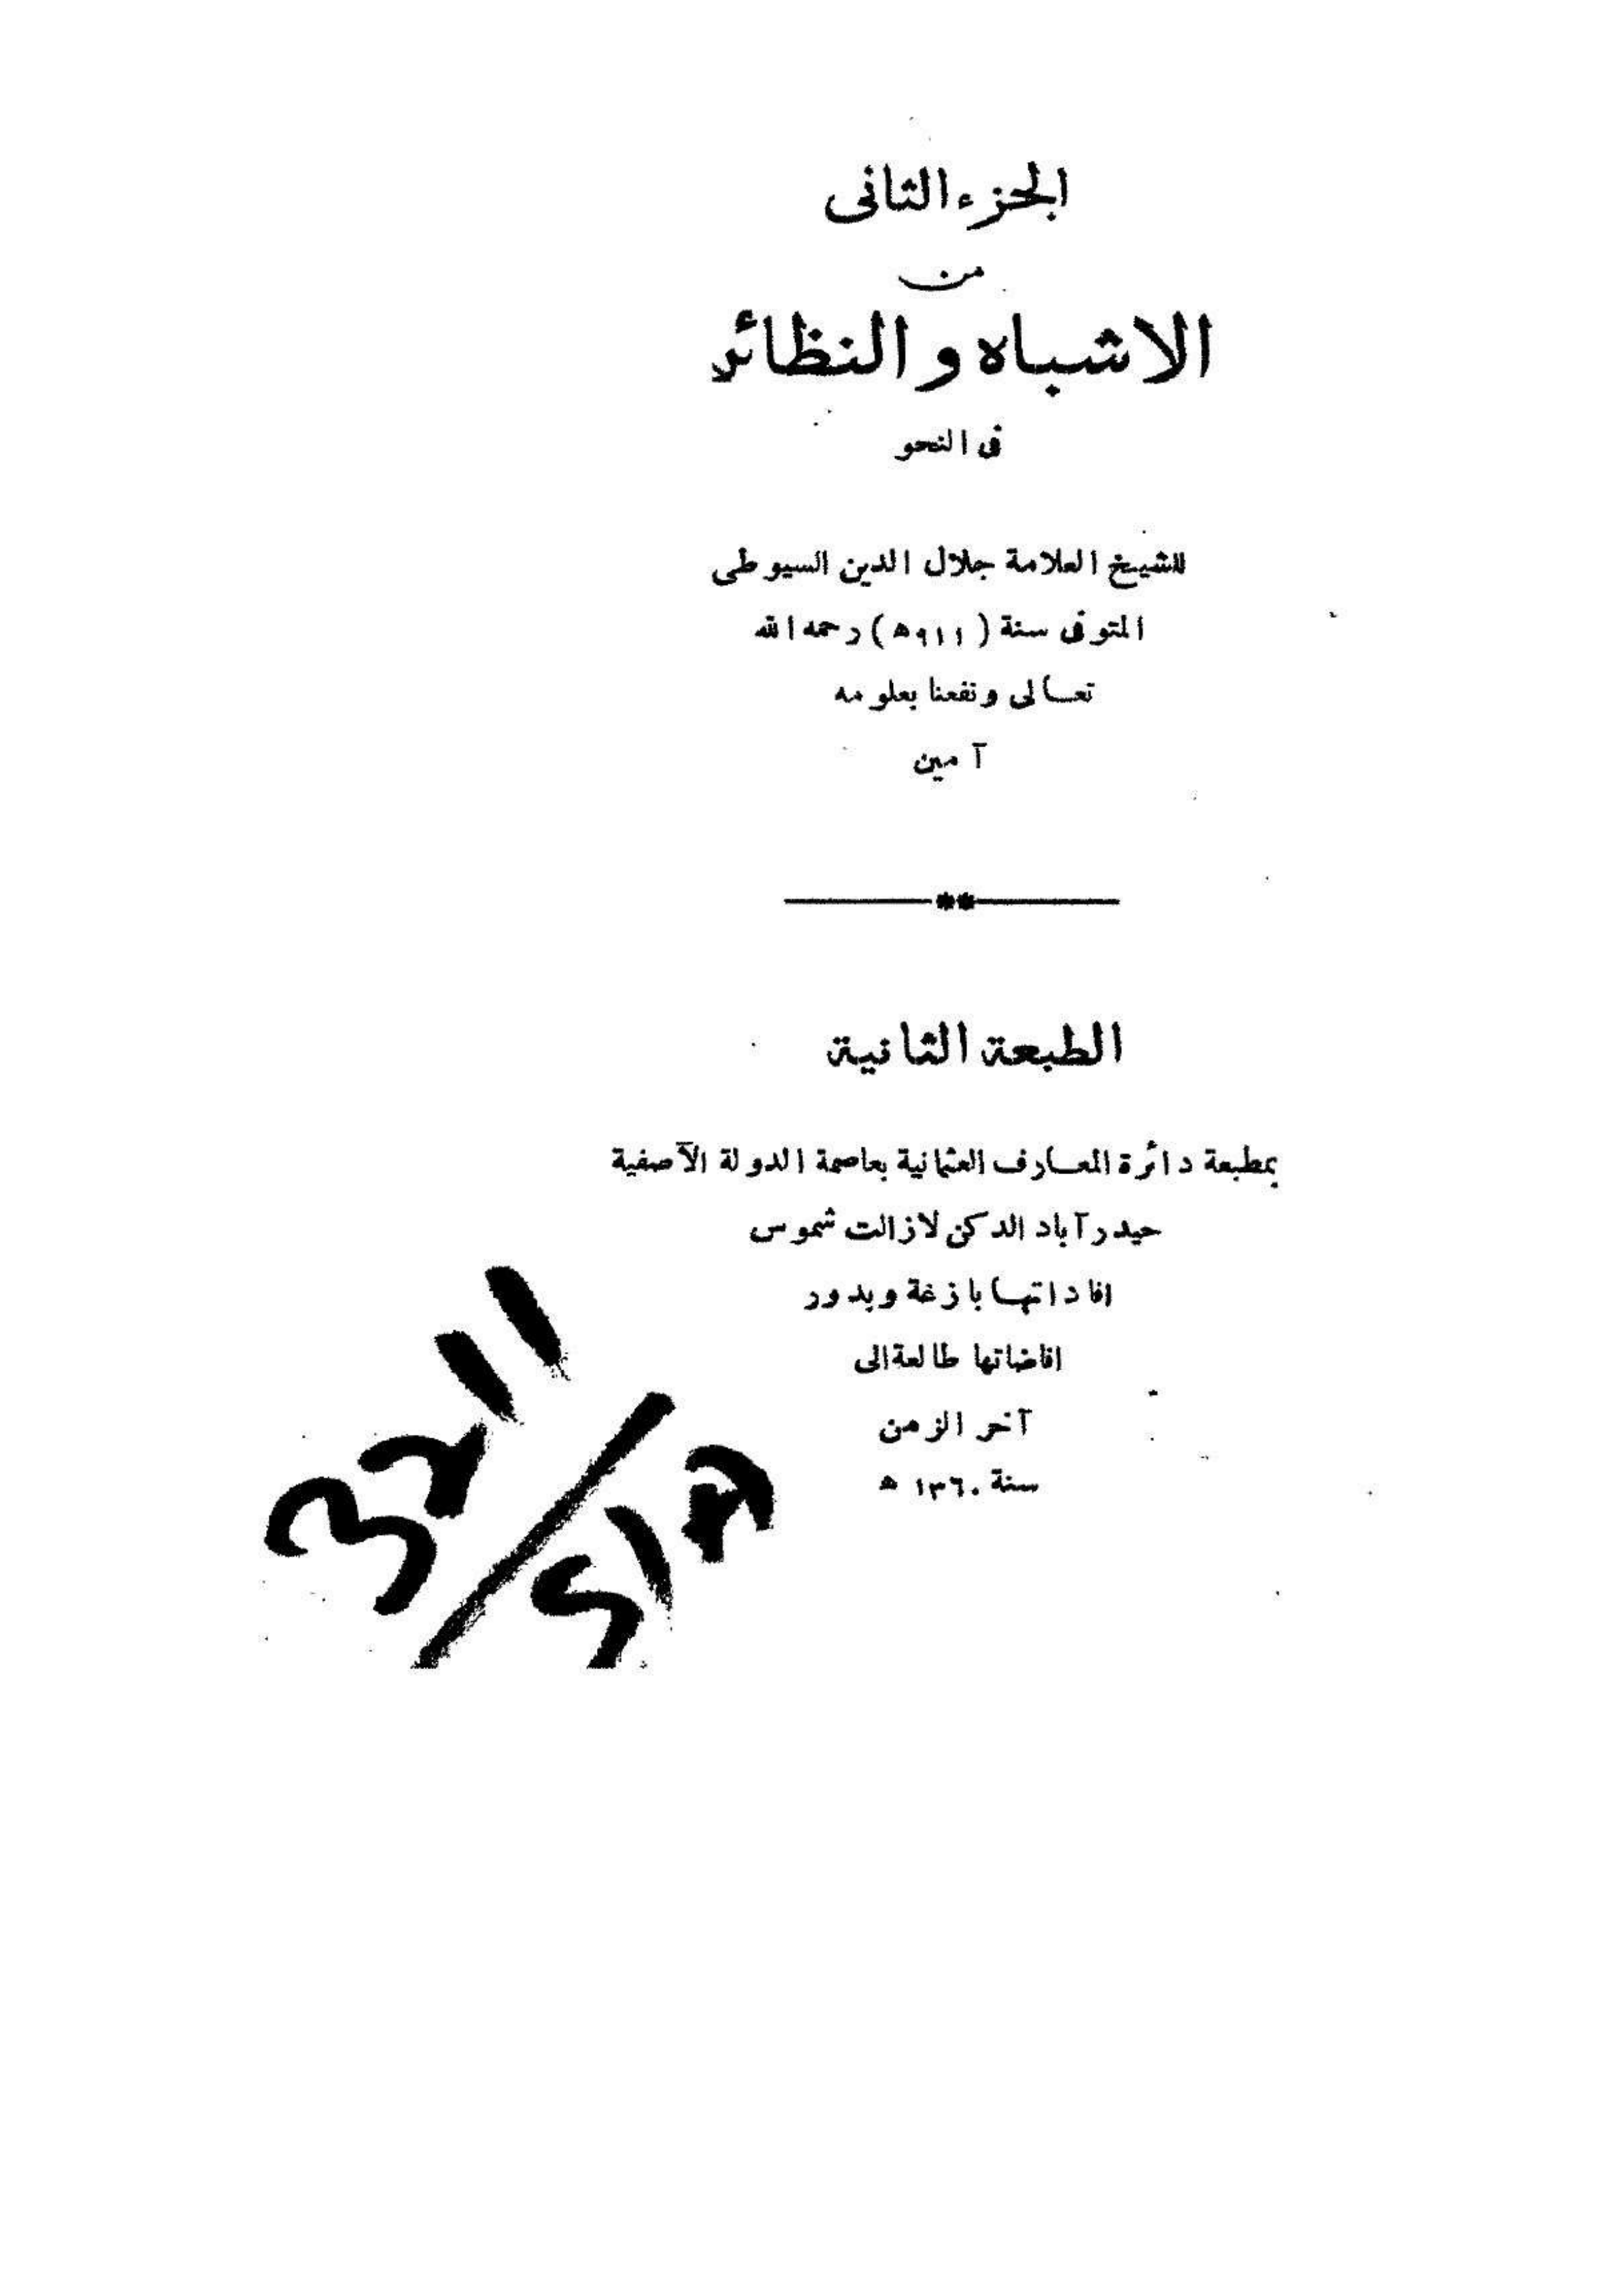 الجزء الثانى
من
الاشباه والنظائر
فى النحو
للشيخ العلامة جلال الدين السيوطى
المتوفى سنة ( ٩١١ ه ) رحمه الله
تعالى ونفعنا بعلومه
آمين
الطبعة الثانية
بمطبعة دائرة المعارف العثمانية بعاصمة الدولة الآصفية
حيدرآباد الدكن لازالت شموس
افاداتها بازغة وبدور
افاضاتها طالعة الى
آخر الزمن
سنة ١٣٦٠ ه